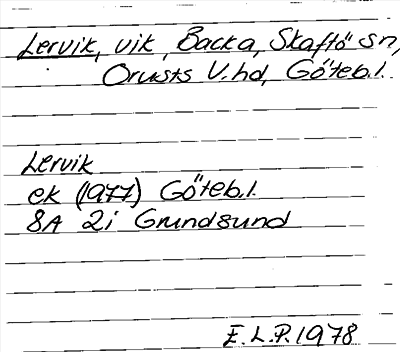 Lervik, vik, Backa, Skaftö sn,
Orusts V.hd, Göteb.l.
Lervik
ek (1977) Göteb.l.
8A 2i Grundsund
E.L.P. 1978